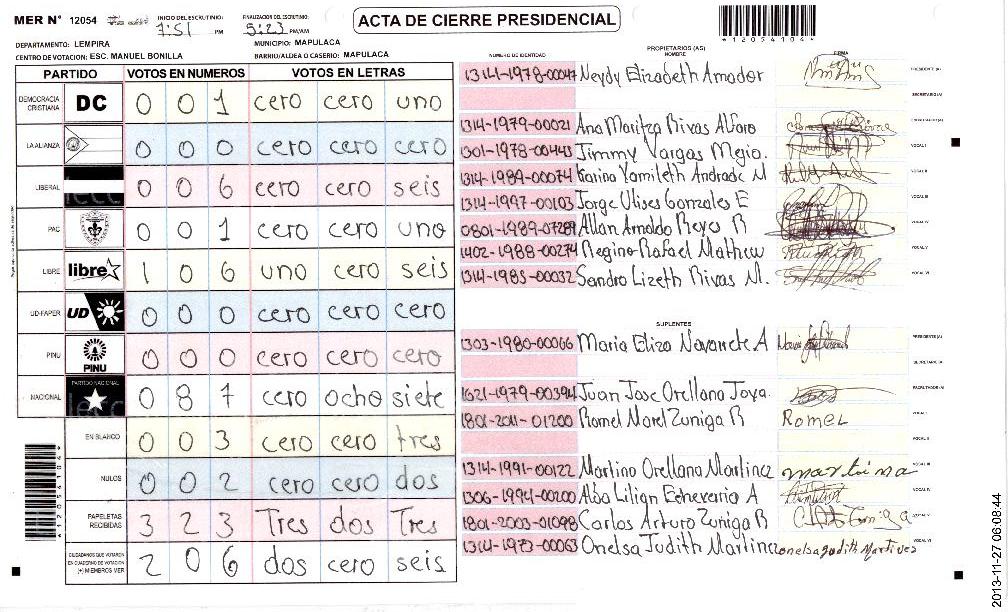 MER Nº 12054 INICIO DEL ESCRUTINIO: 7:51 PM FINALIZACION DEL ESCRUTINIO: 5:23 PM/AM
ACTA DE CIERRE PRESIDENCIAL
*12054104*
DEPARTAMENTO: LEMPIRA MUNICIPIO: MAPULACA
CENTRO DE VOTACION: ESC. MANUEL BONILLA BARRIO/ALDEA O CASERIO: MAPULACA
PARTIDO VOTOS EN NUMEROS VOTOS EN LETRAS
DEMOCRACIA CRISTIANA DC 0 0 1 cero cero uno
LA ALIANZA 0 0 0 cero cero cero
LIBERAL 0 0 6 cero cero seis
PAC 0 0 1 cero cero uno
LIBRE libre 1 0 6 uno cero seis
UD-FAPER UD 0 0 0 cero cero cero
PINU PINU 0 0 0 cero cero cero
NACIONAL PARTIDO NACIONAL 0 8 7 cero ocho siete
EN BLANCO 0 0 3 cero cero tres
NULOS 0 0 2 cero cero dos
PAPELETAS RECIBIDAS 3 2 3 Tres dos Tres
CIUDADANOS QUE VOTARON EN CUADERNO DE VOTACION (+) MIEMBROS MER 2 0 6 dos cero seis
*12054104*
PROPIETARIOS (AS)
NUMERO DE IDENTIDAD NOMBRE FIRMA
1314-1978-00047 Neydy Elizabeth Amador PRESIDENTE (A)
SECRETARIO (A)
1314-1979-00021 Ana Maritza Rivas Alfaro
1301-1978-00443 Jimmy Vargas Mejia. VOCAL I
1314-1989-00074 Karina Yamileth Andrade M VOCAL II
1314-1997-00103 Jorge Ulises Gonzales E VOCAL III
0801-1989-07289 Allan Arnoldo Reyes R VOCAL IV
1402-1988-00274 Regino Rafael Mathew VOCAL V
1314-1985-00032 Sandra Lizeth Rivas M. VOCAL VI
SUPLENTES
1303-1980-00066 Maria Eliza Navarrete A PRESIDENTE (A)
SECRETARIO (A)
1621-1979-00394 Juan Jose Orellana Joya.
1801-2011-01200 Romel Morel Zuniga R Romel VOCAL I
VOCAL II
1314-1991-00122 Martina Orellana Martinez martina VOCAL III
1306-1994-00200 Alba Lilian Echeverria A VOCAL IV
1801-2003-01098 Carlos Arturo Zuñiga R VOCAL V
1314-1973-00063 Onelsa Judith Martinez onelsa judith Martinez VOCAL VI
2013-11-27 06:08:44